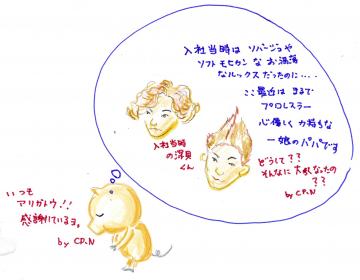 入社当時は ソバージュや
ソフトモヒカン な お洒落
なルックスだったのに・・・・
ここ最近は まるで
プロレスラー
心優しく 力持ちな
一娘のパパです
どうして??
そんなに 大きくなったの
??
by CD.N
入社当時
の深貝
くん
いつも
アリガトウ!!
感謝しているヨ。
by CD.N